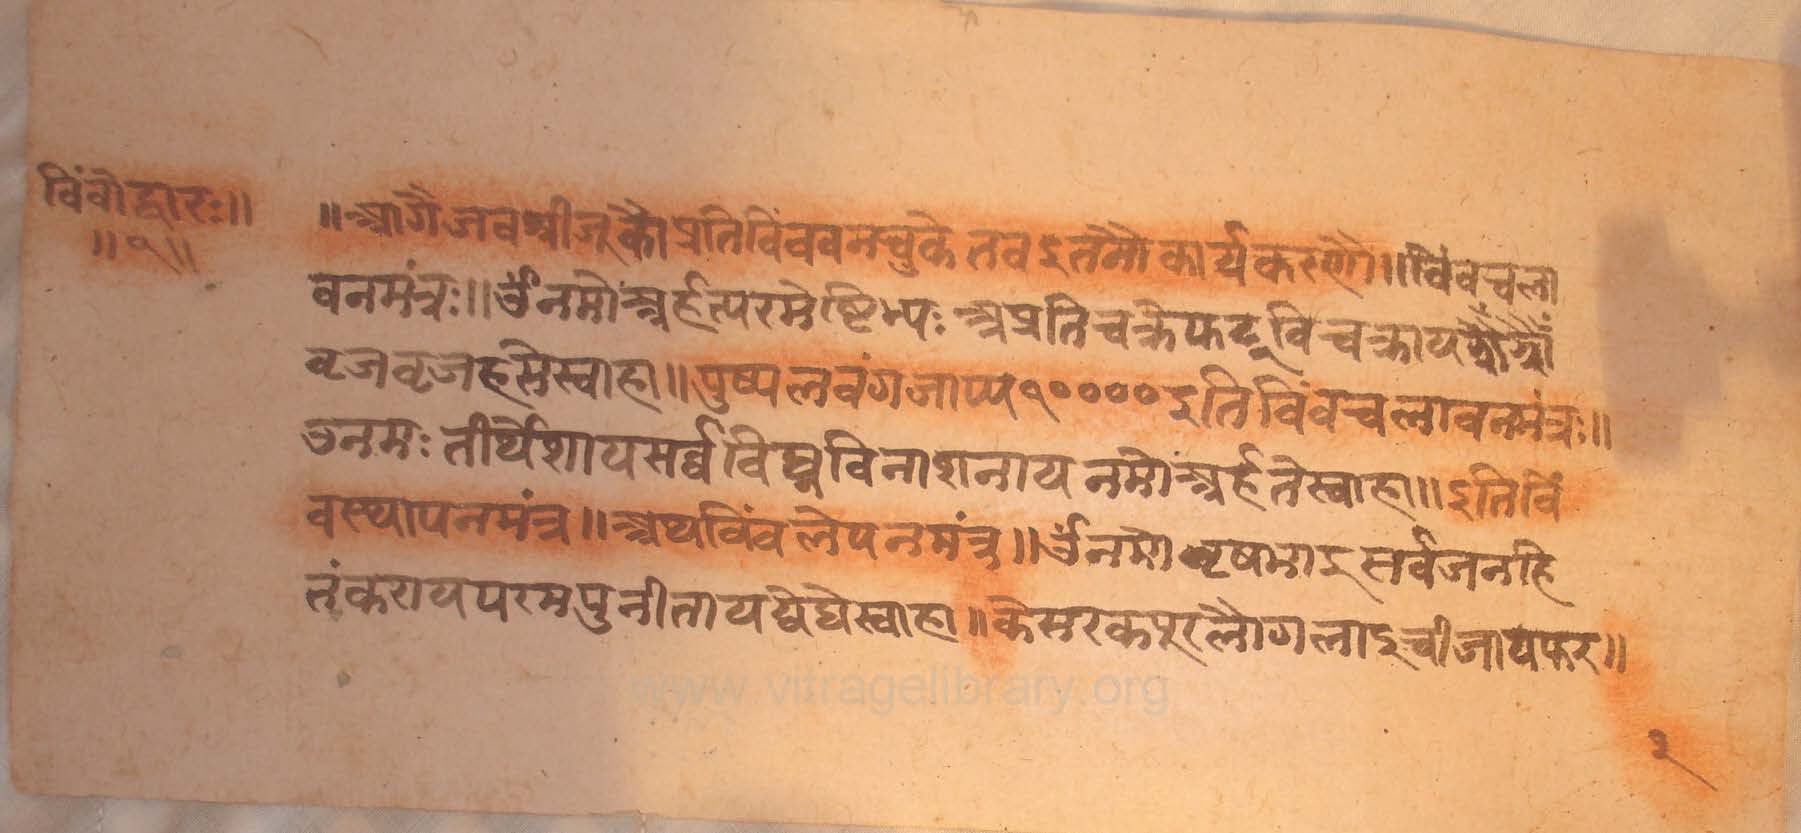 विंवोद्वारः॥
॥१॥
॥आगैजवश्रीजूकौप्रतिविंववनचुकेतवइतनौकार्यकरणौ॥विंवचला
वनमंत्रः॥ॐनमोअर्हत्परमेष्टिभ्यः अप्रतिचक्रेफट्विचक्राय
वृजवृजहसेस्वाहा॥पुष्पलवंगजाप्य१००००इतिविंवचलावनमंत्रः॥
उनमः तीर्थेशायसर्व्वविघ्नविनाशनाय नमोअर्हतेस्वाहा॥इतिविं
वस्थापनमंत्र॥अथविंवलेपनमंत्र॥ॐनमो वृषभाइ सर्वजनहि
तंकरायपरमपुनीतायघेघेस्वाहा॥केसरकपूरलौगलाइचीजायफर॥
www.vitragelibrary.org